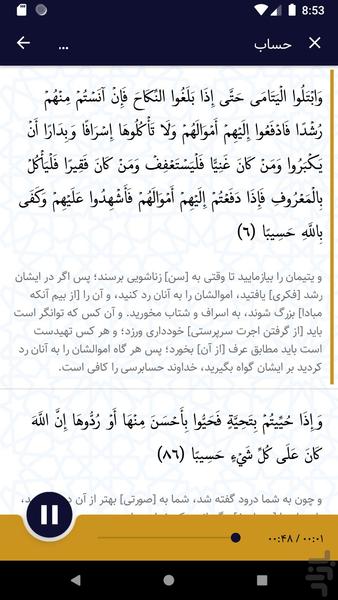 8:53
حساب
...
وَابْتَلُوا الْيَتَامَى حَتَّى إِذَا بَلَغُوا النِّكَاحَ فَإِنْ آنَسْتُمْ مِنْهُمْ
رُشْدًا فَادْفَعُوا إِلَيْهِمْ أَمْوَالَهُمْ وَلَا تَأْكُلُوهَا إِسْرَافًا وَبِدَارًا أَنْ
يَكْبَرُوا وَمَنْ كَانَ غَنِيًّا فَلْيَسْتَعْفِفْ وَمَنْ كَانَ فَقِيرًا فَلْيَأْكُلْ
بِالْمَعْرُوفِ فَإِذَا دَفَعْتُمْ إِلَيْهِمْ أَمْوَالَهُمْ فَأَشْهِدُوا عَلَيْهِمْ وَكَفَى
بِاللَّهِ حَسِيبًا (۶)
و یتیمان را بیازمایید تا وقتی به [سن] زناشویی برسند؛ پس اگر در ایشان
رشد [فکری] یافتید، اموالشان را به آنان رد کنید، و آن را [از بیم آنکه
مبادا] بزرگ شوند، به اسراف و شتاب مخورید. و آن کس که توانگر است
باید [از گرفتن اجرت سرپرستی] خودداری ورزد؛ و هر کس تهیدست
است باید مطابق عرف [از آن] بخورد؛ پس هر گاه اموالشان را به آنان رد
کردید بر ایشان گواه بگیرید، خداوند حسابرسی را کافی است.
وَإِذَا حُيِّيتُمْ بِتَحِيَّةٍ فَحَيُّوا بِأَحْسَنَ مِنْهَا أَوْ رُدُّوهَا إِنَّ اللَّهَ
كَانَ عَلَى كُلِّ شَيْءٍ حَسِيبًا (۸۶)
و چون به شما درود گفته شد، شما به [صورتی] بهتر از آن
۰۰:۴۸ / ۰۰:۰۱
بازار